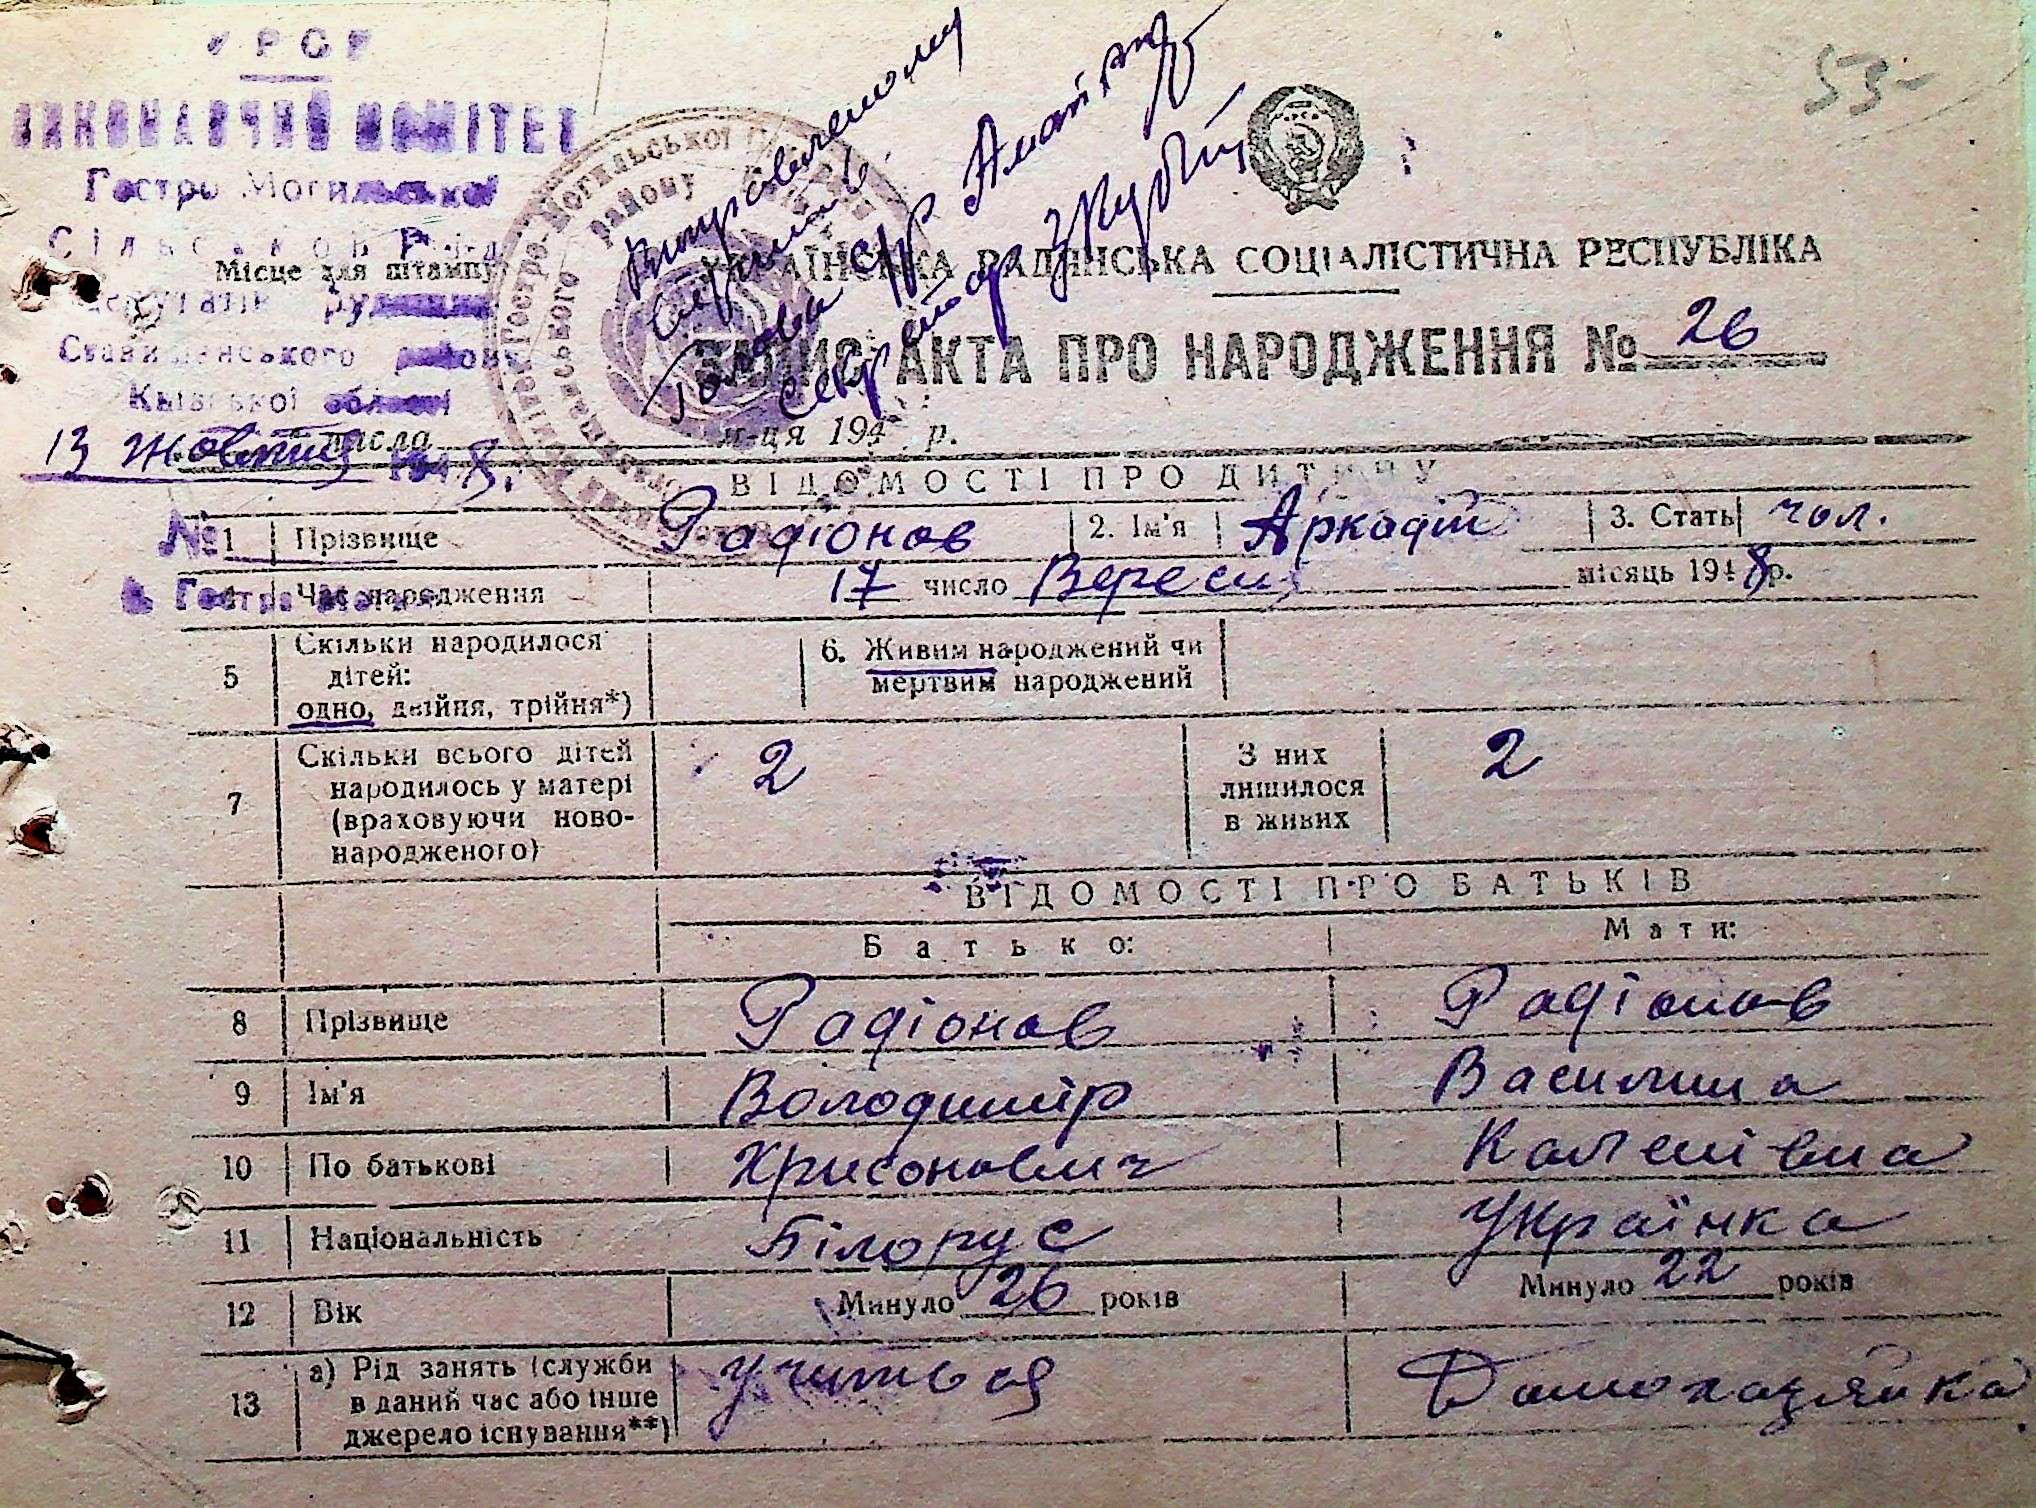 УРСР
ВИКОНАВЧИЙ КОМІТЕТ
Гостро-Могильської
Сільської Ради
Місце для штампу
депутатів
Ставищенського району
Київської області
13 жовтня 1948.
числа м-ця 194 р.
№
Виправленому
Голова с/р
секретар
53
УКРАЇНСЬКА РАДЯНСЬКА СОЦІАЛІСТИЧНА РЕСПУБЛІКА
ЗАПИС АКТА ПРО НАРОДЖЕННЯ № 26
ВІДОМОСТІ ПРО ДИТИНУ
1 Прізвище Радіонов 2. Ім'я Аркадій 3. Стать чол.
4 Час народження 17 число Вересня місяць 1948 р.
5 Скільки народилося дітей: одно, двійня, трійня*) 6. Живим народжений чи мертвим народжений
7 Скільки всього дітей народилось у матері (враховуючи ново-народженого) 2 З них лишилося в живих 2
ВІДОМОСТІ ПРО БАТЬКІВ
Батько: Мати:
8 Прізвище Радіонов Радіонов
9 Ім'я Володимір Василина
10 По батькові Хрисонович Каленівна
11 Національність Білорус Українка
12 Вік Минуло 26 років Минуло 22 років
13 а) Рід занять (служби в даний час або інше джерело існування**) учиться Домохазяйка